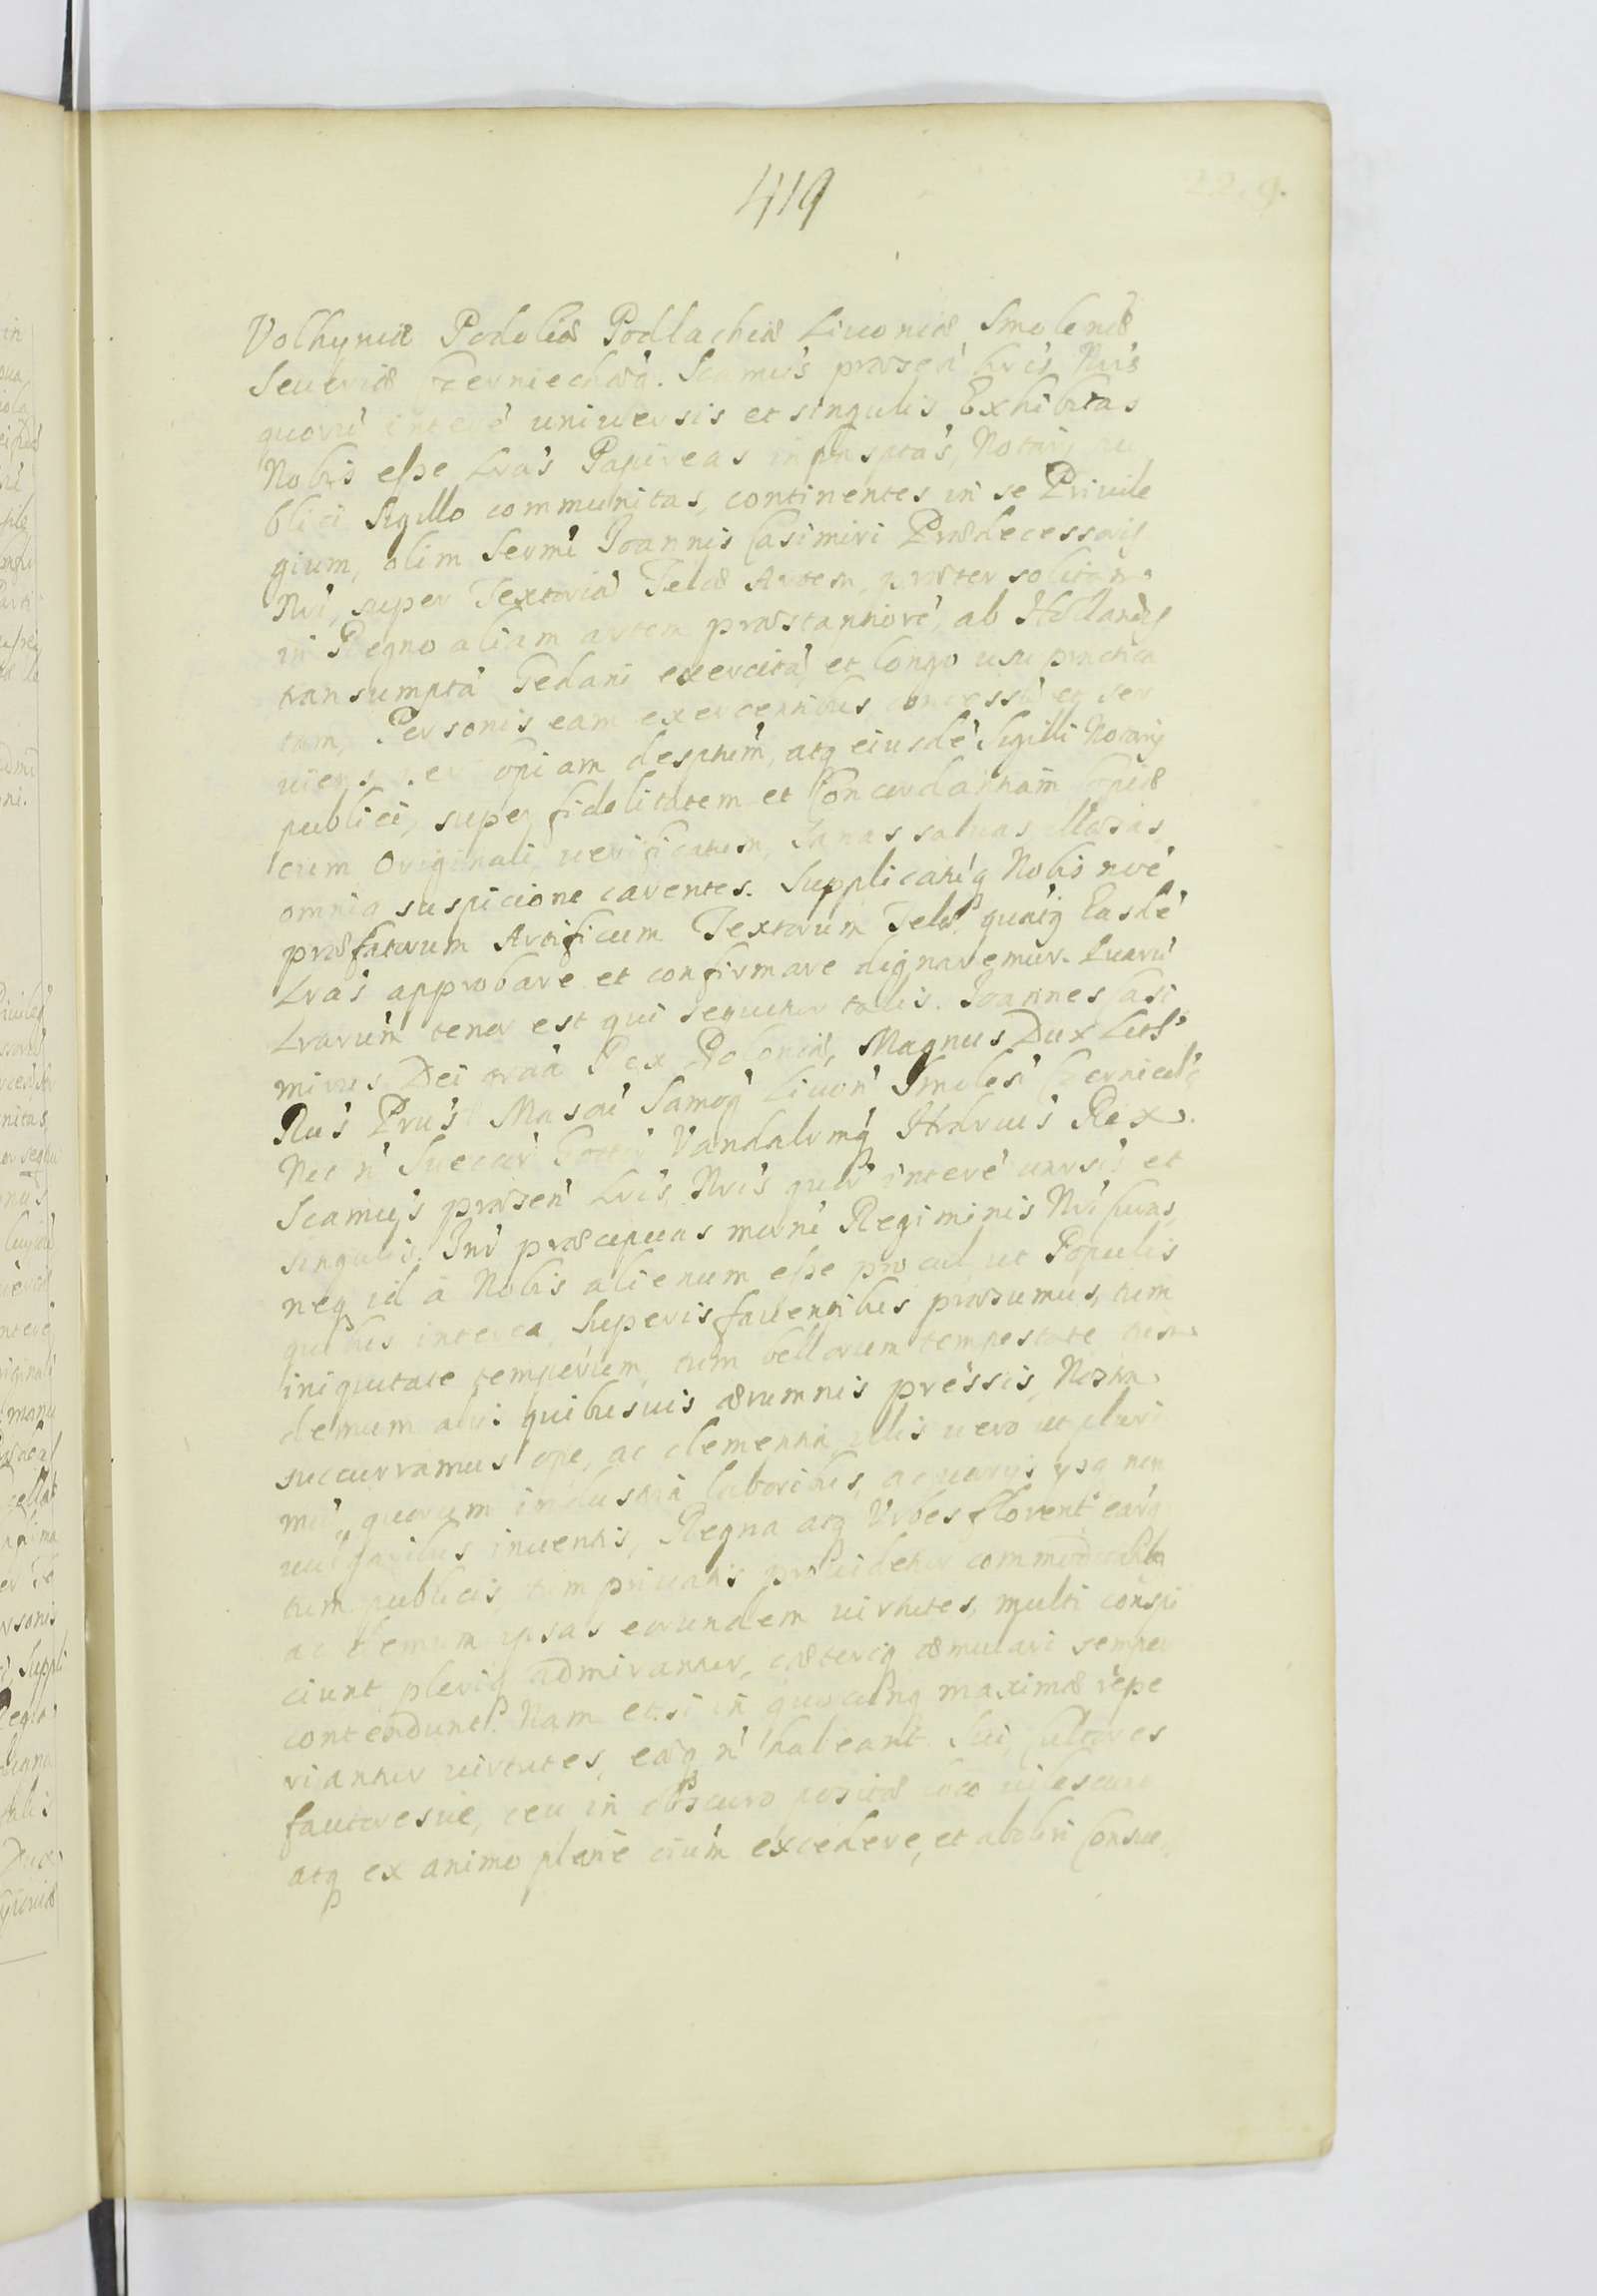 419
229.
Volhyniæ Podoliæ Podlachiæ Liuoniæ Smolenæ
Seueriæ Czerniechæq́. Scamus præsen' Lris Nris
quorũ interé uniuersis et singulis Exhibitas
Nobis esse Lras Papireas infrasptas, Notarij pu
blici Sigillo communitas, continentes in se Priuile
gium, olim Sermi Joannis Casimiri Prædecessoris
Nri, super Textoriã Telæ Artem, præter solitam
in Regno aliam artem præstantiorẽ, ab Hollandis
transumptã Gedani exercitã et longo usu practica
tam, Personis eam exercentibus concessũ et ser
uiens, per copiam desptum, atq eiusdẽ Sigilli Notarij
publici, super fidelitatem et Concordantiam copiæ
cum Originali, uerificatum, Sanas saluas illæsas
omniq suspicione carentes. Supplicatũq Nobis noẽ
præfatorum Artificum Textorum Telæ quatq Easdẽ
Lras approbare et confirmare dignaremur. Quarũ
Lrarum tenor est qui sequitur talis. Joannes Casi
mirus Dei graã Rex Poloniæ, Magnus Dux Litt'
Rus' Prus' Masoũ' Samog' Liuon' Smolen' Czerniech'q
Nec n' Suecor' Gottor' Vandalorumq Hrdrius Rex.
Scamus præsen' Lris Nris quor' interé unrsis et
singulis. Intr præcipuas muni Regiminis Nri curas,
neq id à Nobis alienum esse procul ut Populis
quibus interea Superis fauentibus præsumus, tum
iniquitate temporum, tum bellorum tempestate tum
demum alijs quibusuis ærumnis pressis, Nostra
succurramus ope, ac clementia illis uero ut pluri
mũ, quorum industria laboribus, ac uarijs ipsq non
uulgaribus inuentis, Regna atq Urbes florent earq
tum publicis tum priuatis prouidetur commoditatib9
ac demum ipsas eorundem uirtutes, multi conspi
ciunt, plerq admirantur, cæteriq æmulari semper
contendunt. Nam etsi in quocunq maximæ repe
riantur uirtutes, eæq n' habeant Sui cultores
fautoresue, ceu in obscuro positæ loco uilescunt
atq ex animo plane ciũm excedere, et aboleri Consue